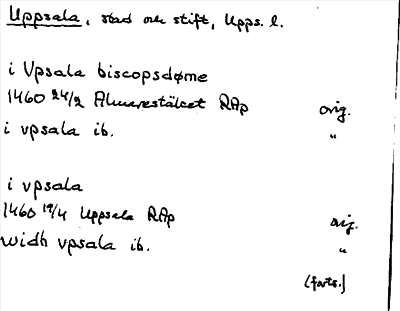 Uppsala, stad och stift, Upps. l.
i Vpsala biscopsdøme
1460 24/2 Almarestäket RAp orig.
i vpsala ib. "
i vpsala
1460 19/4 Uppsala RAp orig.
widh vpsala ib. "
(forts.)